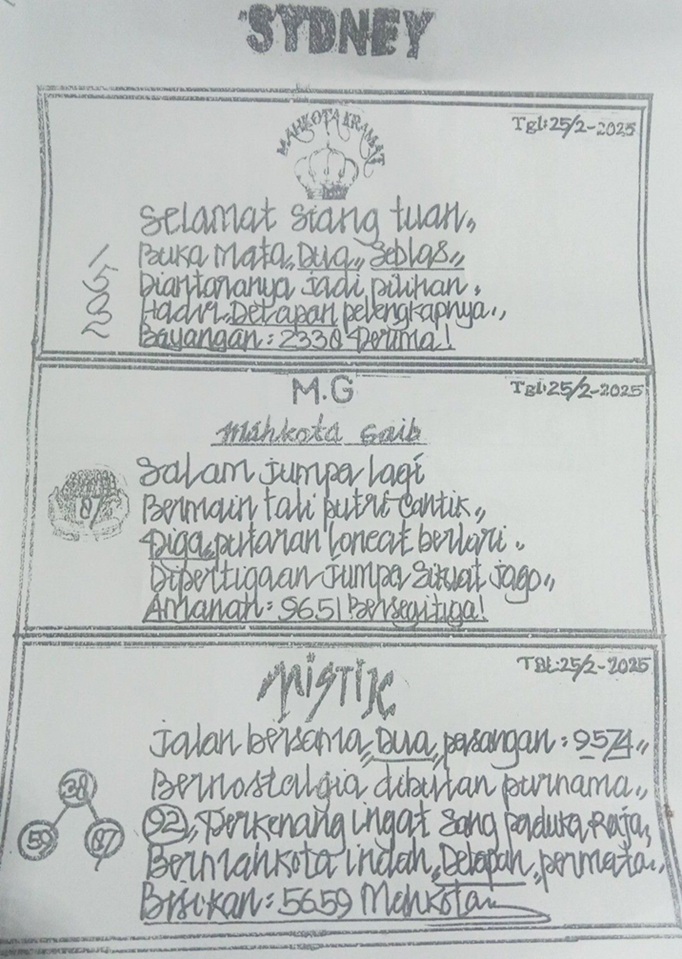 SYDNEY
MAHKOTA KRAMAT
Tgl:25/2-2025
Selamat Siang tuan,,
Buka Mata,,Dua,,Seblas,,
Diantaranya jadi pilihan.
Hadir,,Delapan pelengkapnya.,,
Bayangan: 2330 Derima!
M.G
Tgl:25/2-2025
Mahkota Gaib
Salam jumpa lagi
Bermain tali putri cantik,,
Diga,,putaran loncat berlari.
Dipertigaan jumpa Siluat jago,,
Amanah: 9651 Bersegitiga!
MISTIK
Tgl:25/2-2025
Jalan bersama,,Dua,,pasangan: 9574,,
Bernostalgia dibulan purnama,,
92,,Terkenang ingat Sang paduka Raja,,
Bermahkota indah,,Delapan,,permata.,,
Bisikan: 5659 Mahkota
38
59
87